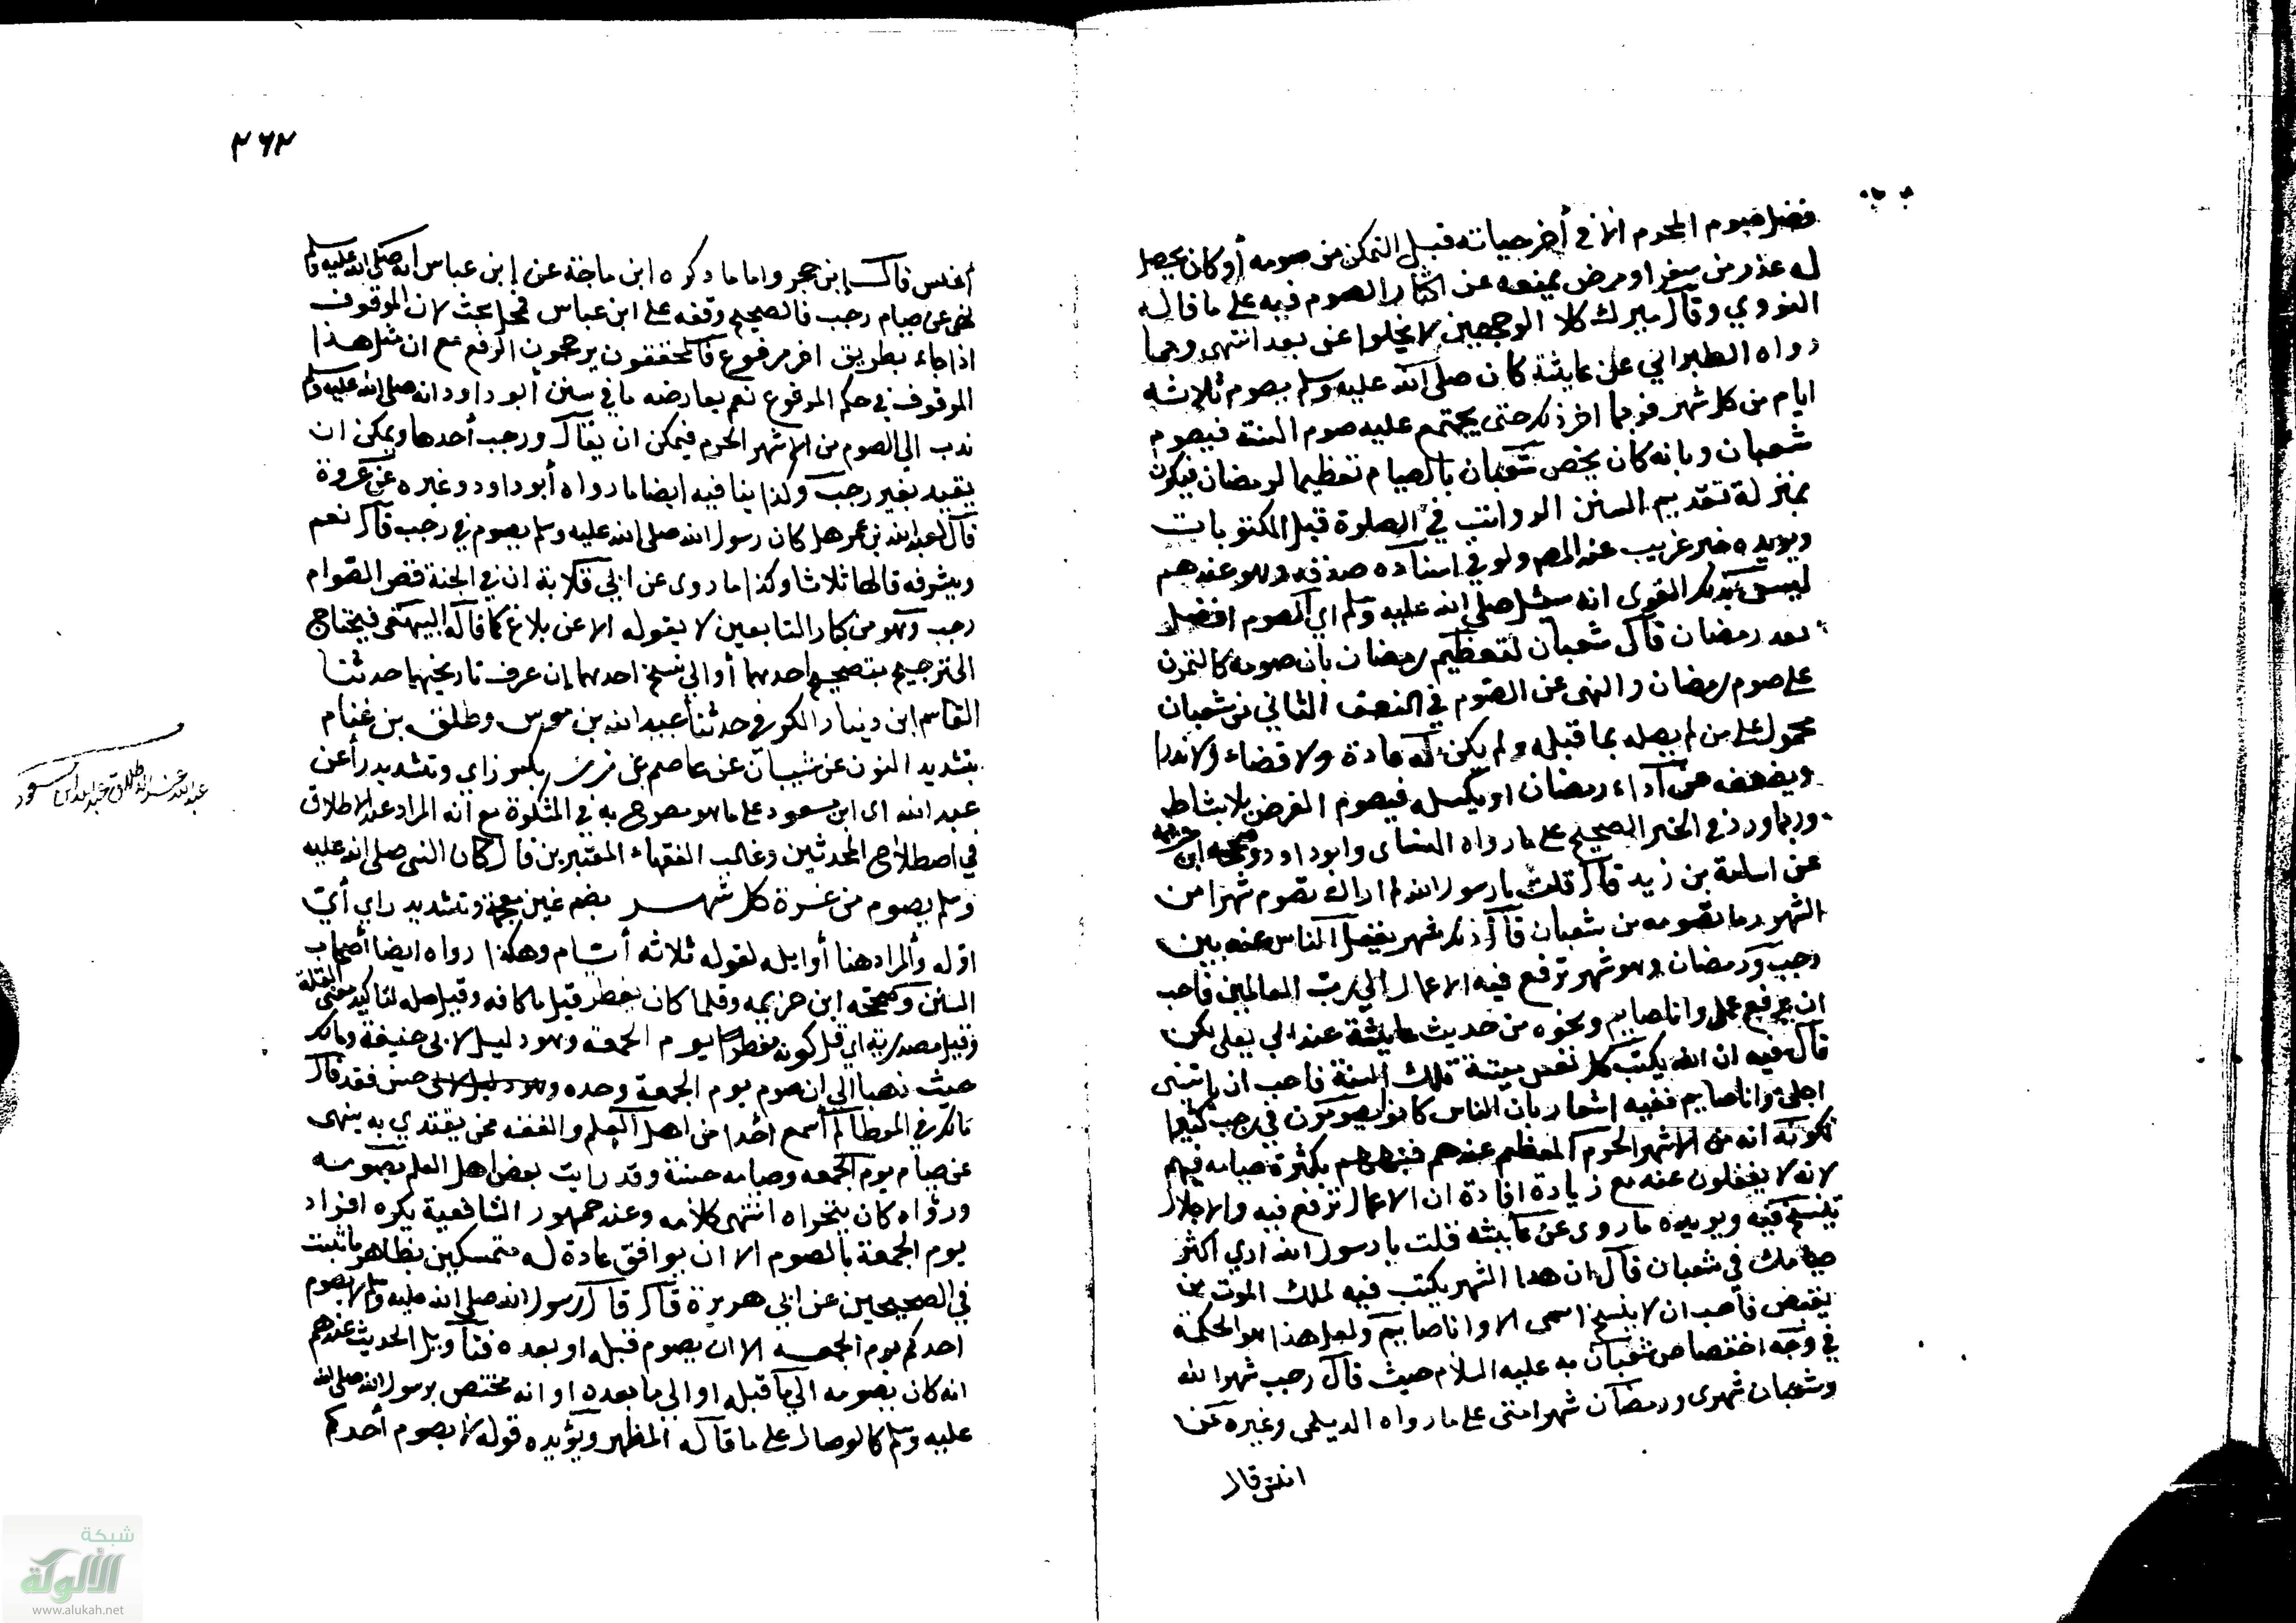 فضل صوم المحرم الا في أخر حياته قبل التمكن من صومه أو كان يحصل
له عذر من سفر او مرض يمنعه عن اكثار الصوم فيه على ما قاله
النووي وقال ميرك كلا الوجهين لا يخلوا عن بعد انتهى وبما
رواه الطبراني عن عايشة كان صلى الله عليه وسلم يصوم ثلاثة
ايام من كل شهر فربما اخر ذلك حتى يجتمع عليه صوم السنة فيصوم
شعبان وبانه كان يخص شعبان بالصيام تعظيما لرمضان فيكون
بمنزلة تقديم السنن الرواتب في الصلوة قبل المكتوبات
ويويده خبر غريب عند المص ولو في اسناده صدقه وهو عندهم
ليس بذلك القوى انه سئل صلى الله عليه وسلم اي الصوم افضل
بعد رمضان قال شعبان لتعظيم رمضان بان صومه كالتمرن
على صوم رمضان والنهى عن الصوم في النصف الثاني من شعبان
محمول على من لم يصله بما قبله ولم يكن له عادة ولا قضاء ولا نذرا
ويضعفه عن آداء رمضان او يكسله فيصوم الفرض بلا نشاط
وربما ورد في الخبر الصحيح على ما رواه النساى وابو داود وصححه ابن خزيمة
عن اسامة بن زيد قال قلت يا رسول الله لم اراك تصوم شهرا من
الشهور ما تصومه من شعبان قال ذلك شهر يغفل الناس عنه بين
رجب ورمضان وهو شهر ترفع فيه الاعمال الى رب العالمين فاحب
ان يرفع عملى وانا صايم ونحوه من حديث عايشة عند ابي يعلى لكن
قال فيه ان الله يكتب كل نفس ميتة تلك السنة فاحب ان ياتيني
اجلي وانا صايم ففيه إشعار بان الناس كانوا يصومون في رجب كثيرا
لكونه انه من الاشهر الحرم المعظم عندهم فنبههم بكثرة صيامه فيهم
لانه لا يغفلون عنه مع زيادة افادة ان الاعمال ترفع فيه والاجلال
تنسخ فيه ويويده ما روى عن عايشه قلت يا رسول الله ارى اكثر
صيامك في شعبان قال ان هذا الشهر يكتب فيه لملك الموت من
يقبض فأحب ان لا ينسخ اسمى الا وانا صايم ولعل هذا هو الحكمة
في وجه اختصاص شعبان به عليه السلام حيث قال رجب شهر الله
وشعبان شهرى ورمضان شهر امتى على ما رواه الديلمى وغيره عن
انس قال
٢٦٢
أنس قال إبن حجر واما ما ذكره ابن ماجة عن إبن عباس انه صلى الله عليه وسلم
نهى عن صيام رجب فالصحيح وقفه على ابن عباس فمحل بحث لان الموقوف
اذا جاء بطريق اخر مرفوع فالمحققون يرجحون الرفع مع ان مثل هذا
الموقوف في حكم المرفوع نعم يعارضه ما في سنن أبو داود انه صلى الله عليه وسلم
ندب الى الصوم من الاشهر الحرم فيمكن ان يقال ورجب أحدها ويمكن ان
يقيد بغير رجب ولذا ينافيه ايضا ما رواه أبو داود وغيره عن عروة
قال لعبد الله بن عمر هل كان رسول الله صلى الله عليه وسلم يصوم في رجب قال نعم
ويشرفه قالها ثلاثا وكذا ما روى عن ابي قلابة ان في الجنة قصر الصوام
رجب وهو من كبار التابعين لا يقوله الا عن بلاغ كما قاله البيهقى فيحتاج
الى ترجيح بتصحيح احدهما أو الى نسخ احدهما إن عرف تاريخهما حدثنا
القاسم ابن دينار الكوفي حدثنا عبيد الله بن موسى وطلق بن غنام
بتشديد النون عن شيبان عن عاصم عن زر بكسر زاي وتشديد را عن
عبد الله اى ابن مسعود على ما هو مصرح به في المشكوة مع انه المراد عند الاطلاق
في اصطلاح المحدثين وغالب الفقهاء المعتبرين قال كان النبى صلى الله عليه
وسلم يصوم من غرة كل شهر بضم غين معجمة وتشديد راي أي
اوله والمراد هنا أوايله لقوله ثلاثه أيام وهكذا رواه ايضا أصحاب
السنن وصححه ابن خزيمه وقلما كان يفطر قيل ما كافه وقيل صله لتاكيد معنى القلة
وقيل مصدرية اي قل كونه مفطرا يوم الجمعة وهو دليل لابى حنيفة ومالك
حيث ذهبا الى ان صوم يوم الجمعة وحده حسن فقد قال
مالك في الموطا لم أسمع احدا من اهل العلم والفقه ممن يقتدي به ينهى
عن صيام يوم الجمعه وصيامه حسنة وقد رايت بعض اهل العلم يصومه
ورؤاه كان يتحراه انتهى كلامه وعند جمهور الشافعية يكره افراد
يوم الجمعة بالصوم الا ان يوافق عادة له متمسكين بظاهر ما ثبت
في الصحيحين عن ابي هريرة قال قال رسول الله صلى الله عليه وسلم لا يصوم
احدكم يوم الجمعه الا ان يصوم قبله او بعده فتأويل الحديث عندهم
انه كان يصومه الى ما قبله او الى ما بعده او انه مختص برسول الله صلى الله
عليه وسلم كالوصال على ما قاله المظهر ويؤيده قوله لا يصوم أحدكم
شبكة
الألوكة
www.alukah.net